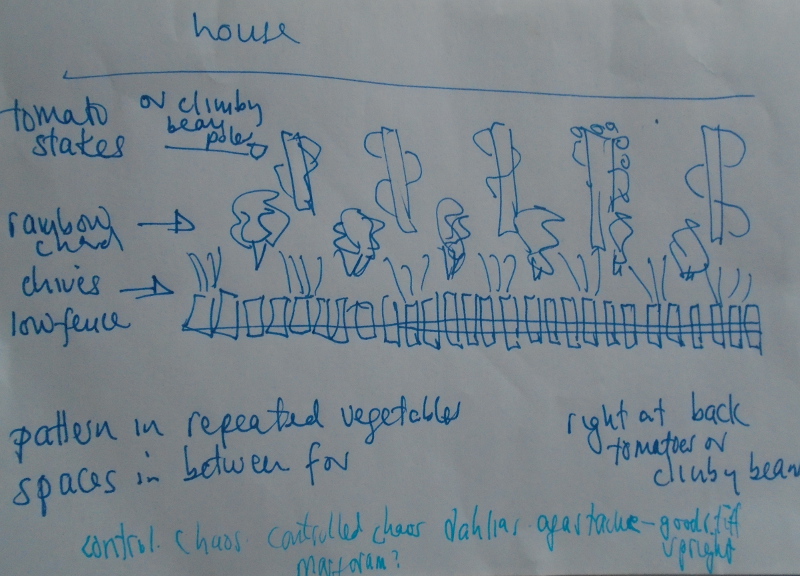 house
tomato
stakes
or climby
bean
poles
rainbow
chard
chives
low fence
pattern in repeated vegetables
spaces in between for
right at back
tomatoes or
climby bean
control. chaos. controlled chaos dahlias. agastache - good stiff
upright
marjoram?